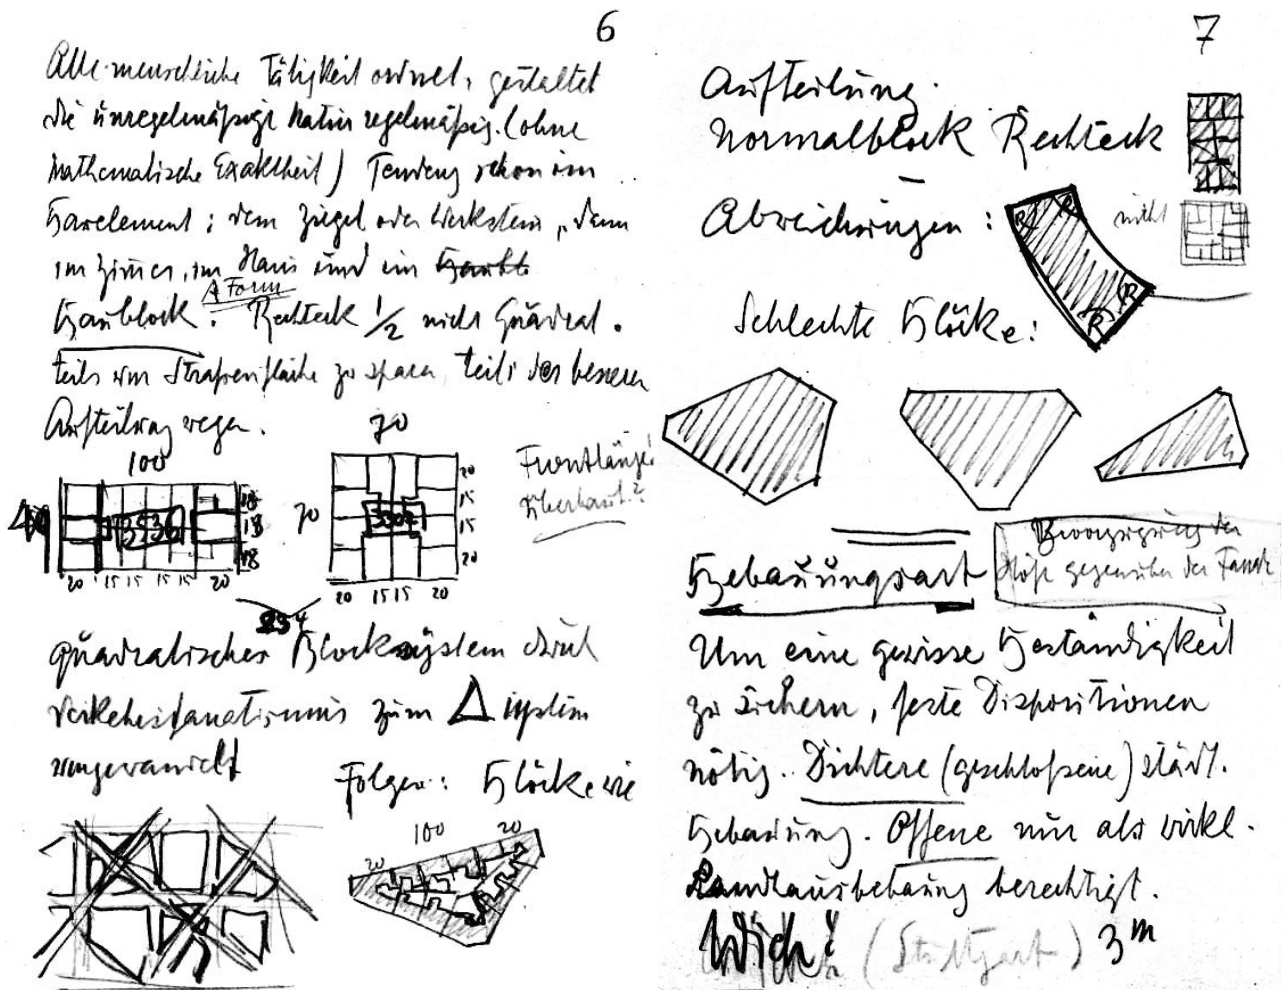 6
Alle menschliche Tätigkeit ordnet, gestaltet
die unregelmäßige Natur regelmäßig. (ohne
Mathematische Exaktheit) Tendenz schon im
Bauelement; dem Ziegel oder Werkstein, dann
im Zimmer, im Haus und im
Form
Baublock. Rechteck 1/2 nicht Quadrat.
teils um Straßenfläche zu sparen, teils der besseren
Aufteilung wegen.
100
70
Frontlänge
Überhaupt?
40
3536
18
18
18
20 15 15 15 15 20
70
20
15
15
20
20 15 15 20
quadratisches Blocksystem durch
Verkehrsfanatismus zum Δ system
umgewandelt
Folgen: Blöcke wie
20 100 20
7
Aufteilung.
Normalblock Rechteck
Abweichungen:
R R
R R
nicht
Schlechte Blöcke:
Bebauungsart
Bevorzugung der
Höfe gegenüber der
Um eine gewisse Beständigkeit
zu sichern, feste Dispositionen
nötig. Dichtere (geschloßene) städt.
Bebauung. Offene nur als wirkl.
Landhausbebauung berechtigt.
Wich! (Stuttgart) 3 m